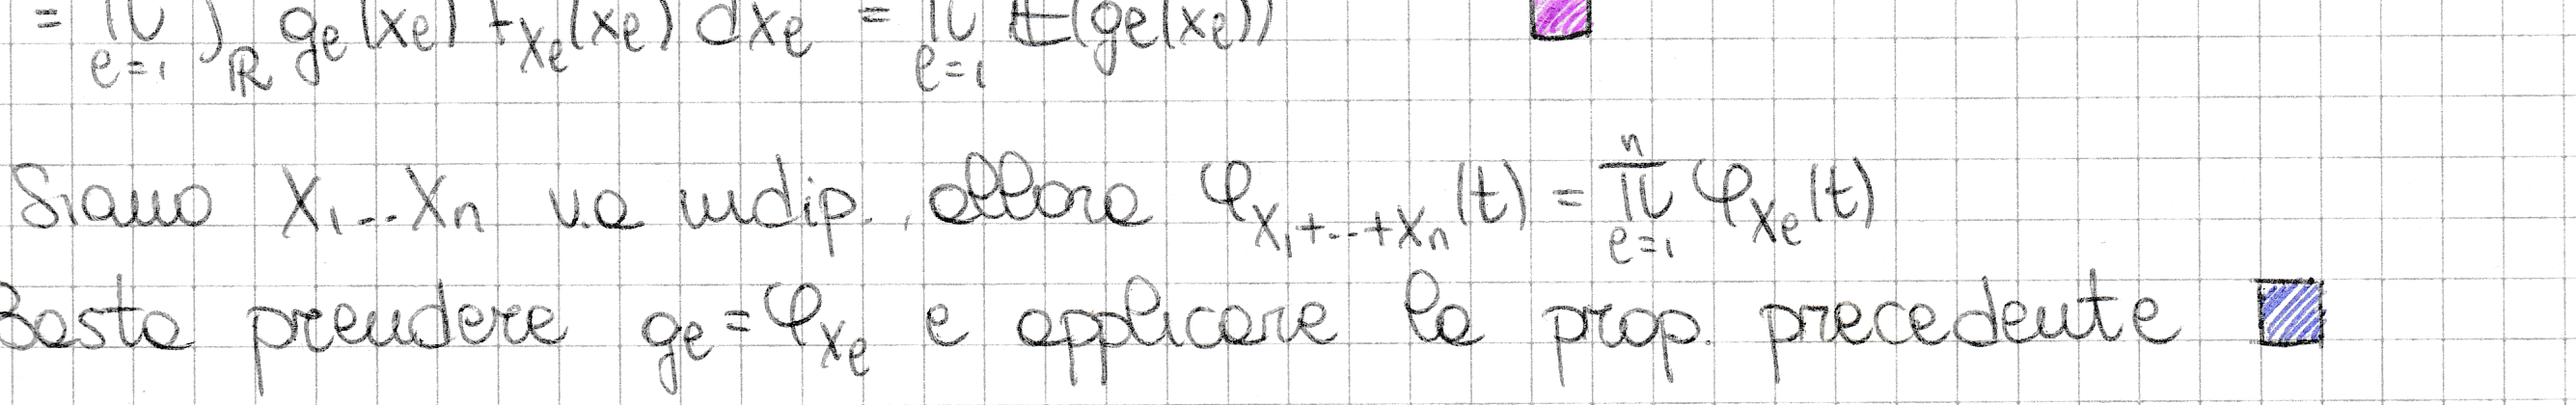 = ∏_{ℓ=1} ∫_ℝ g_ℓ(x_ℓ) f_{X_ℓ}(x_ℓ) dx_ℓ = ∏_{ℓ=1} 𝔼(g_ℓ(x_ℓ))
Siano X₁...Xₙ v.a indip., allora φ_{X₁+...+Xₙ}(t) = ∏_{ℓ=1}^{n} φ_{X_ℓ}(t)
Basta prendere g_ℓ = φ_{X_ℓ} e applicare la prop. precedente